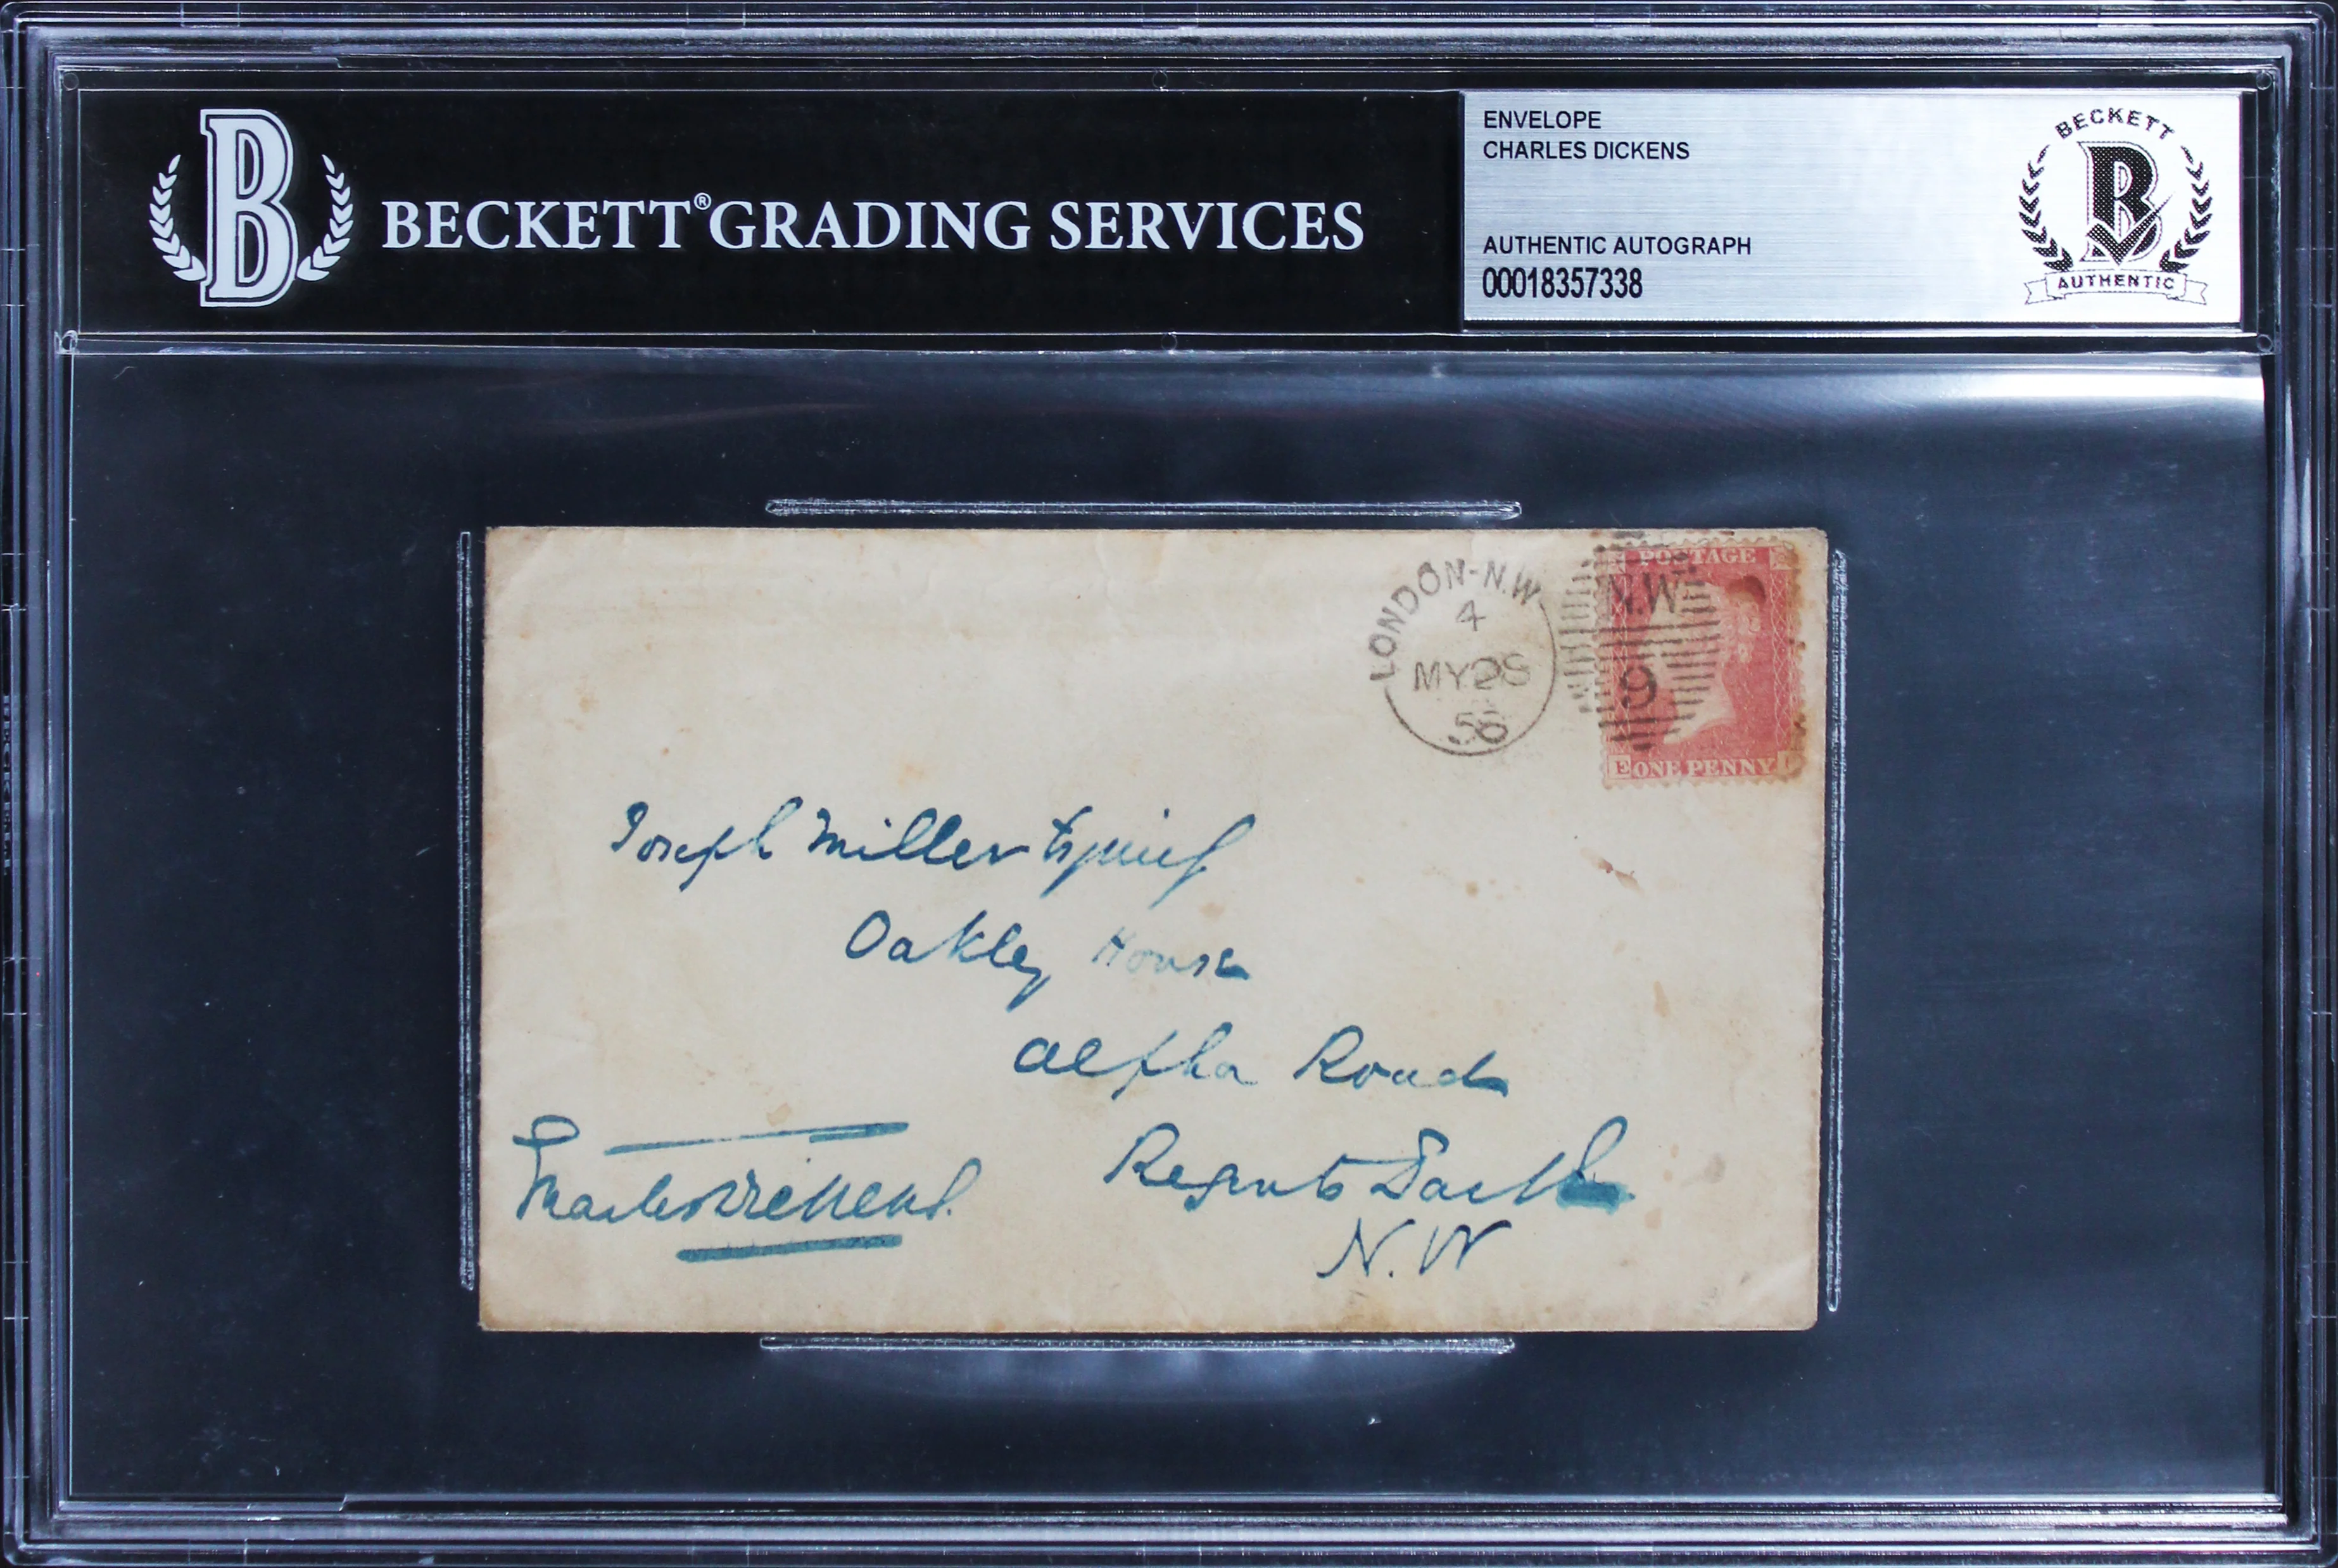 BECKETT® GRADING SERVICES
ENVELOPE
CHARLES DICKENS
AUTHENTIC AUTOGRAPH
00018357338
BECKETT
B
AUTHENTIC
B
LONDON-N.W
4
MY 28
58
POSTAGE
N.W
9
E ONE PENNY
Joseph Miller Esquire
Oakley House
Alpha Road
Regents Park
N.W
Charles Dickens.